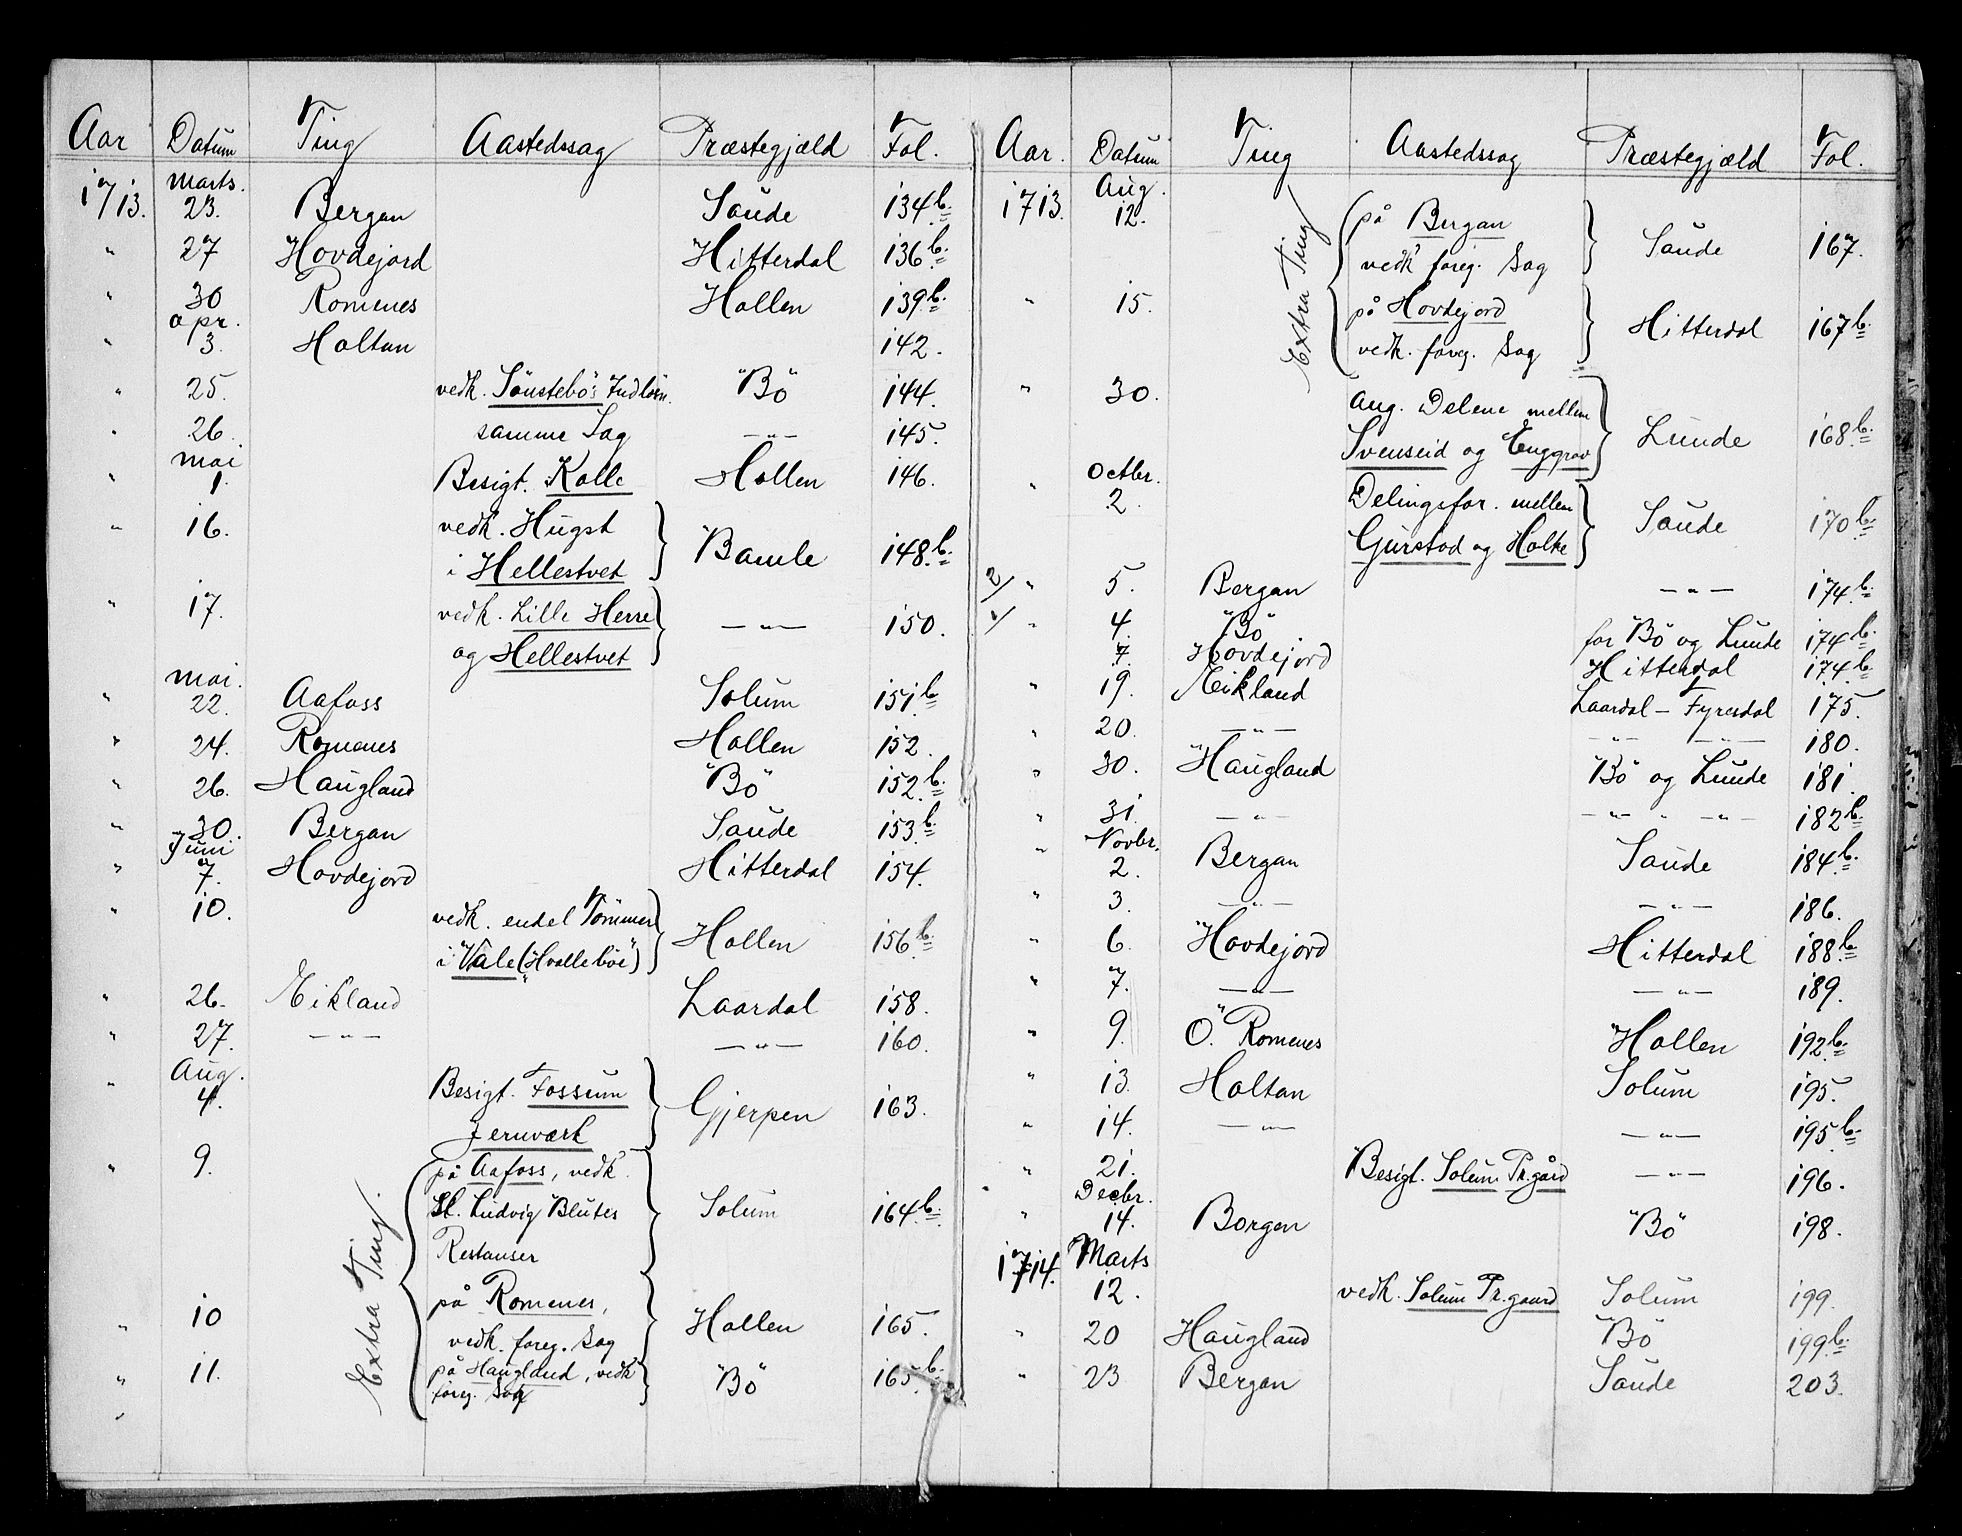 Aar Datum Ting Aastedssag Præstegjæld Fol.
1713. Marts. 23. Bergan Saude 134 b.
" 27 Hovdejord Hitterdal 136 b.
" 30 Romenes Hollen 139 b.
" apr. 3. Holtan 142.
" 25. vedk. Sönstebö's Indløsn. Bö 144.
" 26. samme Sag —"— 145.
" mai 1. Besigt. Kolle Hollen 146.
" 16. vedk. Hugst
i Hellestvet Bamle 148 b.
" 17. vedk. Lille Herre
og Hellestvet —"— 150.
" mai. 22. Aafoss Solum 151 b
" 24. Romenes Hollen 152.
" 26. Haugland Bö 152 b.
" 30. Bergan Saude 153 b.
" Juni 7. Hovdejord Hitterdal 154.
" 10. vedk. endel Tömmer
i Vale (Hvalleböe) Hollen 156 b.
" 26. Eikland Laardal 158.
" 27. —"— —"— 160.
" Aug. 4. Besigt. Fossum
Jernværk Gjerpen 163.
" 9. Extra Ting. på Aafoss, vedk.
Sl. Ludvig Blutes
Restanser Solum 164 b.
" 10 på Romenes,
vedk. foreg. Sag Hollen 165.
" 11. på Haugland, vedk
foreg. Sag Bö 165 b.
"
Aar. Datum Ting Aastedssag Præstegjæld Fol.
1713. Aug. 12. Extra Ting på Bergan
vedk foreg. Sag Saude 167.
" 15. på Hovdejord
vedk. foreg. Sag Hitterdal 167 b.
" 30. ang. Delene mellem
Svenseid og Enggrav Lunde 168 b.
" Octbr. 2. Delingsfor. mellem
Gurstad og Holte Saude 170 b.
2/ " 5. Bergan —"— 174 b.
1/ " 4. Bö for Bö og Lunde 174 b.
7. Hovdejord Hitterdal 174 b.
" 19. Eikland Laardal — Fyresdal 175.
" 20. —"— —"— —"— 180.
" 30. Haugland Bö og Lunde 181.
" 31. —"— —"— " —"— 182 b.
" Novbr. 2. Bergan Saude 184 b.
" 3. —"— —"— 186.
" 6. Hovdejord Hitterdal 188 b.
" 7. —"— —"— 189.
" 9. Ö. Romenes Hollen 192 b.
" 13. Holtan Solum 195.
" 14. —"— —"— 195 b.
" 21. Besigt. Solum Pr.gård —"— 196.
" Decbr. 14. Borgen Bö 198.
1714. Marts 12. vedk. Solum Pr.gaard Solum 199.
" 20 Haugland Bö 199 b.
" 23 Bergan Saude 203.